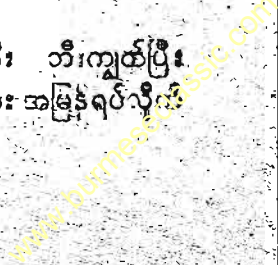 ဘီးကျွတ်ပြီး
အမြန်ရပ်လိုက်
www.burmeseclassic.com